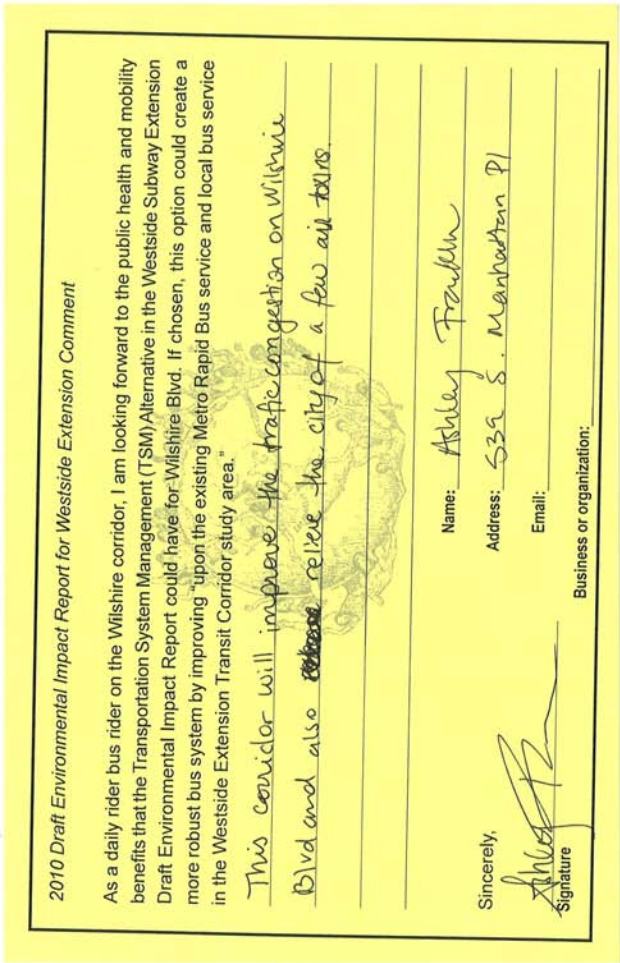 2010 Draft Environmental Impact Report for Westside Extension Comment
As a daily rider bus rider on the Wilshire corridor, I am looking forward to the public health and mobility
benefits that the Transportation System Management (TSM) Alternative in the Westside Subway Extension
Draft Environmental Impact Report could have for Wilshire Blvd. If chosen, this option could create a
more robust bus system by improving "upon the existing Metro Rapid Bus service and local bus service
in the Westside Extension Transit Corridor study area."
This corridor will improve the trafic congestion on Wilshire
Blvd and also relieve the city of a few air toxins.
Name: Ashley Franklin
Address: 539 S. Manhattan Pl
Email:
Business or organization:
Sincerely,
Signature